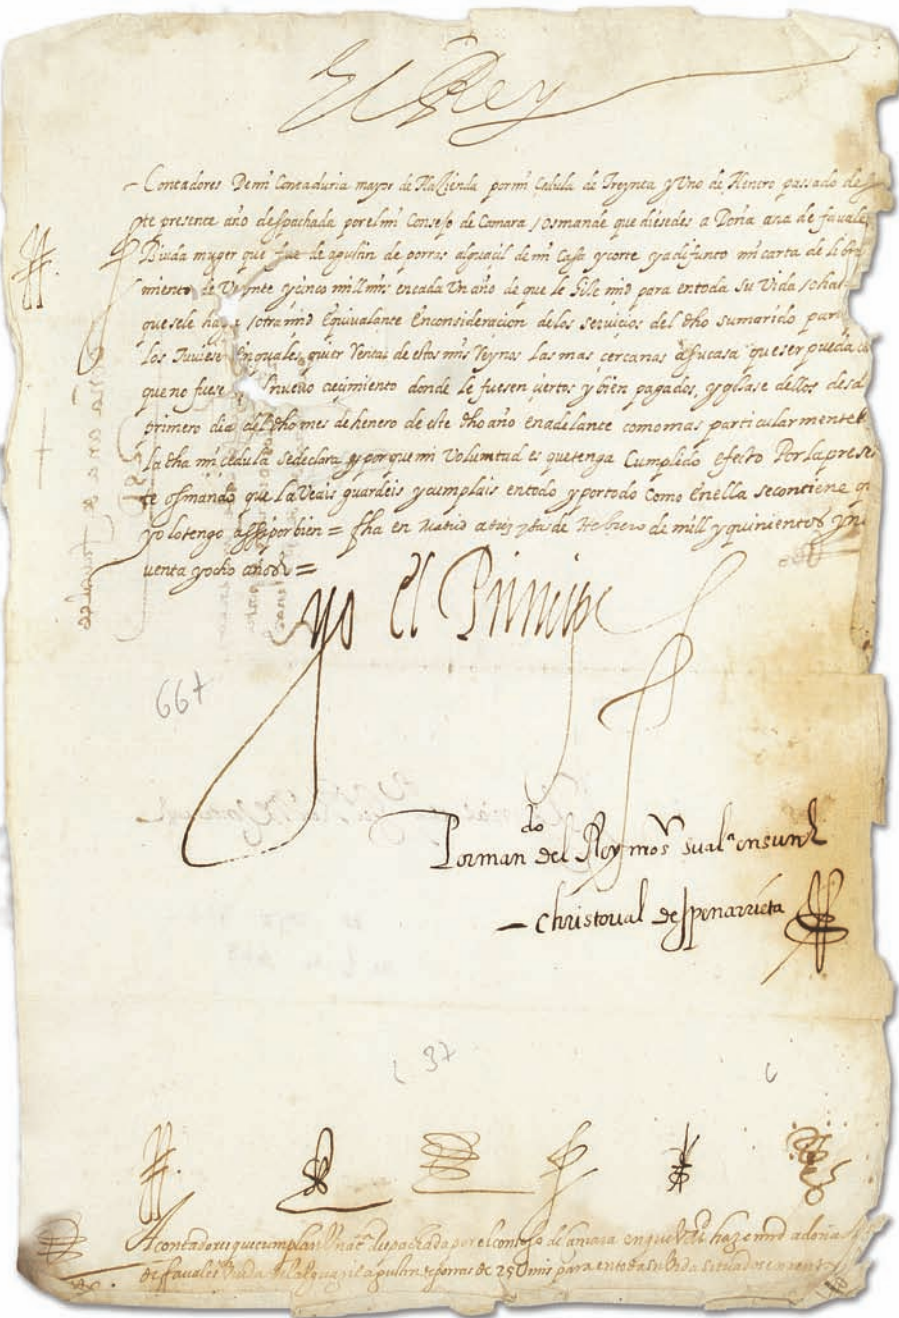 El Rey
Contadores De mi Contaduria mayor de Hazienda por mi Cedula de Treynta y Uno de Henero passado de
ste presente año despachada por el mi Consejo de Camara / os mande que diesedes a Doña ana de favales
Biuda muger que fue de agustin de porras alguacil de mi Casa y corte ya difunto mi carta de libra
miento de Veynte y cinco mill mrs en cada Un año de que le hize md para en toda su Vida / o hasta
que se le haga / otra md Equivalante En consideracion de los servicios del dho su marido para
los Tuviese En quales quier Rentas de estos mis Reynos Las mas cercanas a su casa que ser pueda
que no fuese nuevo crecimiento donde le fuesen çiertos y bien pagados, y gozase dellos desde
primero dia del dho mes de henero de este dho año en adelante como mas particularmente
la dha mi cedula se declara y porque mi Voluntad es que tenga Cumplido efecto Por la presen
te os mando que la Veais guardeis y cumplais en todo y por todo Como En ella se contiene
yo lo tengo assi por bien = fha en Madrid a de Hebrero de mill y quinientos y no
venta y ocho años =
yo el Principe
667
Por mando del Rey mos su al.ª en su nl
Christoval de Ipenarrieta
37
A contadores que cumplan Una c.ª despachada por el consejo de camara en que V M haze md a doña
de favales Biuda del alguazil agustin de porras de 25U mrs para en toda su Vida situados